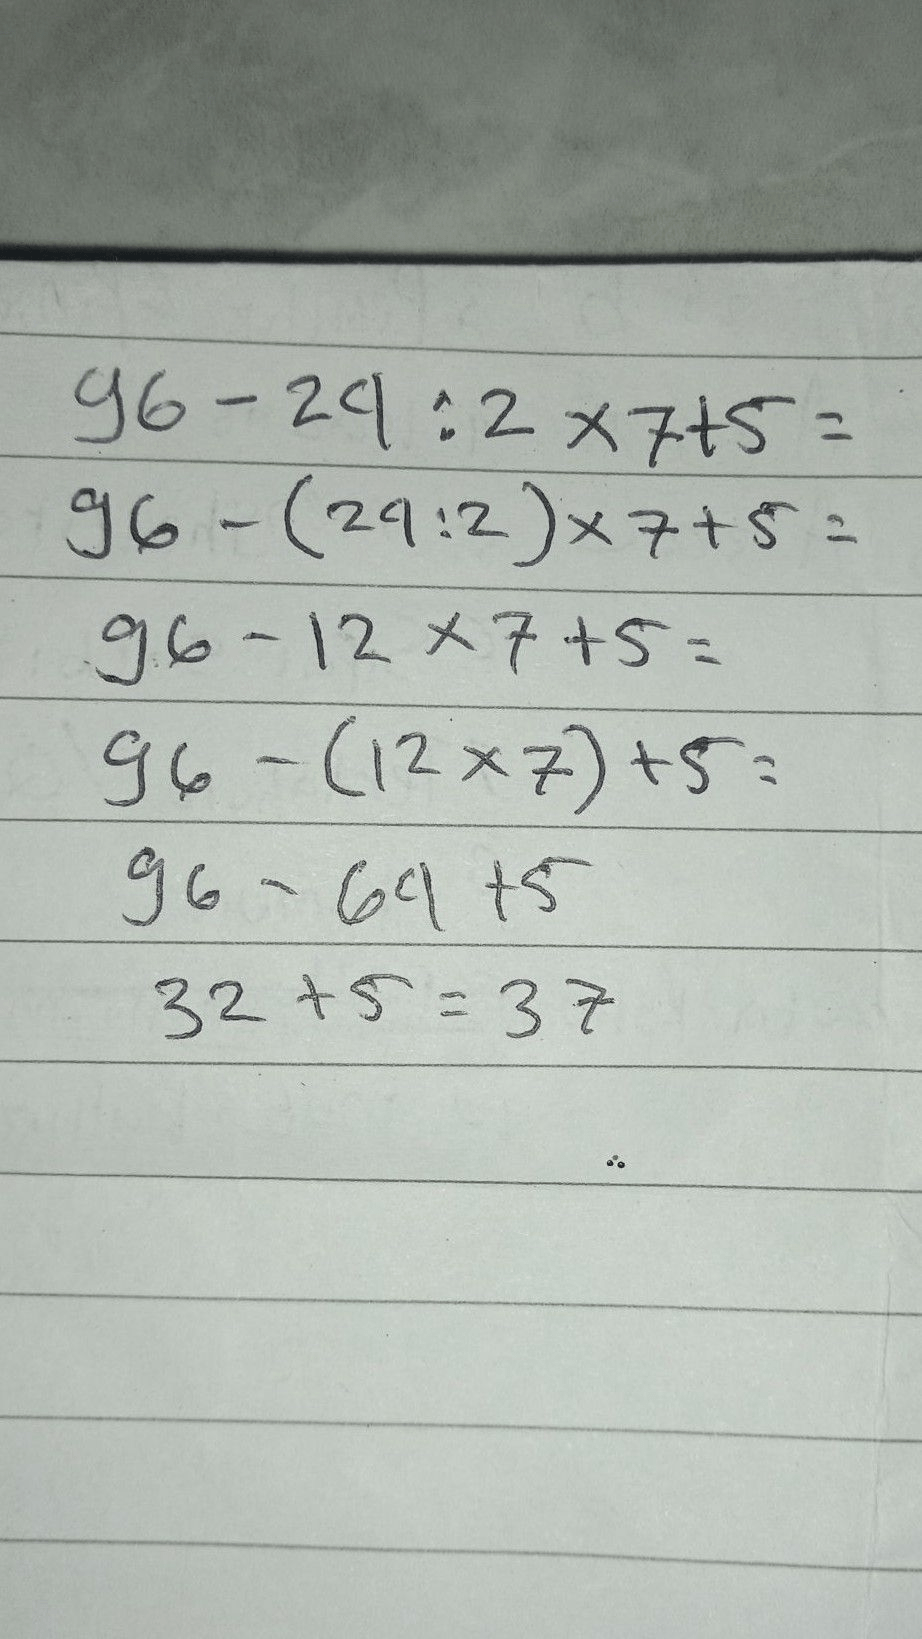 96 - 24 : 2 × 7 + 5 =
96 - (24 : 2) × 7 + 5 =
96 - 12 × 7 + 5 =
96 - (12 × 7) + 5 =
96 - 64 + 5
32 + 5 = 37